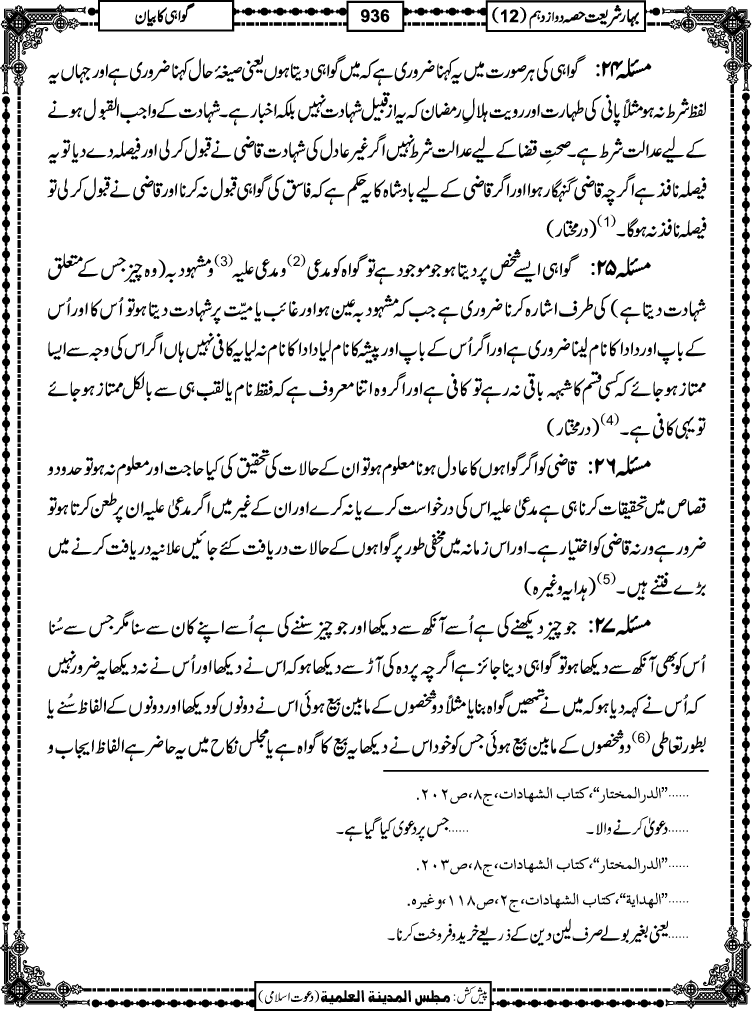 بہار شریعت حصہ دوازدہم (12)
936
گواہی کا بیان
مسئلہ ۲۴: گواہی کی ہر صورت میں یہ کہنا ضروری ہے کہ میں گواہی دیتا ہوں یعنی صیغۂ حال کہنا ضروری ہے اور جہاں یہ
لفظ شرط نہ ہو مثلاً پانی کی طہارت اور رویت ہلالِ رمضان کہ یہ از قبیل شہادت نہیں بلکہ اخبار ہے۔ شہادت کے واجب القبول ہونے
کے لیے عدالت شرط ہے۔ صحتِ قضا کے لیے عدالت شرط نہیں اگر غیر عادل کی شہادت قاضی نے قبول کر لی اور فیصلہ دے دیا تو یہ
فیصلہ نافذ ہے اگرچہ قاضی گنہگار ہوا اور اگر قاضی کے لیے بادشاہ کا یہ حکم ہے کہ فاسق کی گواہی قبول نہ کرنا اور قاضی نے قبول کر لی تو
فیصلہ نافذ نہ ہوگا۔(1) (درمختار)
مسئلہ ۲۵: گواہی ایسے شخص پر دیتا ہو جو موجود ہے تو گواہ کو مدعی(2) و مدعیٰ علیہ(3) و مشہود بہ (وہ چیز جس کے متعلق
شہادت دیتا ہے) کی طرف اشارہ کرنا ضروری ہے جب کہ مشہود بہ عین ہو اور غائب یا میّت پر شہادت دیتا ہو تو اُس کا اور اُس
کے باپ اور دادا کا نام لینا ضروری ہے اور اگر اُس کے باپ اور پیشہ کا نام لیا دادا کا نام نہ لیا یہ کافی نہیں ہاں اگر اس کی وجہ سے ایسا
ممتاز ہو جائے کہ کسی قسم کا شبہہ باقی نہ رہے تو کافی ہے اور اگر وہ اتنا معروف ہے کہ فقط نام یا لقب ہی سے بالکل ممتاز ہو جائے
تو یہی کافی ہے۔(4) (درمختار)
مسئلہ ۲۶: قاضی کو اگر گواہوں کا عادل ہونا معلوم ہو تو ان کے حالات کی تحقیق کی کیا حاجت اور معلوم نہ ہو تو حدود و
قصاص میں تحقیقات کرنا ہی ہے مدعیٰ علیہ اس کی درخواست کرے یا نہ کرے اور ان کے غیر میں اگر مدعیٰ علیہ ان پر طعن کرتا ہو تو
ضرور ہے ورنہ قاضی کو اختیار ہے۔ اور اس زمانہ میں مخفی طور پر گواہوں کے حالات دریافت کئے جائیں علانیہ دریافت کرنے میں
بڑے فتنے ہیں۔(5) (ہدایہ وغیرہ)
مسئلہ ۲۷: جو چیز دیکھنے کی ہے اُسے آنکھ سے دیکھا اور جو چیز سننے کی ہے اُسے اپنے کان سے سنا مگر جس سے سُنا
اُس کو بھی آنکھ سے دیکھا ہو تو گواہی دینا جائز ہے اگرچہ پردہ کی آڑ سے دیکھا ہو کہ اس نے دیکھا اور اُس نے نہ دیکھا یہ ضرور نہیں
کہ اُس نے کہہ دیا ہو کہ میں نے تمھیں گواہ بنایا مثلاً دو شخصوں کے مابین بیع ہوئی اس نے دونوں کو دیکھا اور دونوں کے الفاظ سُنے یا
بطورِ تعاطی(6) دو شخصوں کے مابین بیع ہوئی جس کو خود اس نے دیکھا یہ بیع کا گواہ ہے یا مجلس نکاح میں یہ حاضر ہے الفاظ ایجاب و
......"الدرالمختار"، کتاب الشهادات، ج٨، ص٢٠٢.
......دعویٰ کرنے والا۔ ......جس پر دعویٰ کیا گیا ہے۔
......"الدرالمختار"، کتاب الشهادات، ج٨، ص٢٠٣.
......"الهداية"، کتاب الشهادات، ج٢، ص١١٨، وغیرہ.
......یعنی بغیر بولے صرف لین دین کے ذریعے خرید و فروخت کرنا۔
پیش کش: مجلس المدینة العلمیة (دعوت اسلامی)